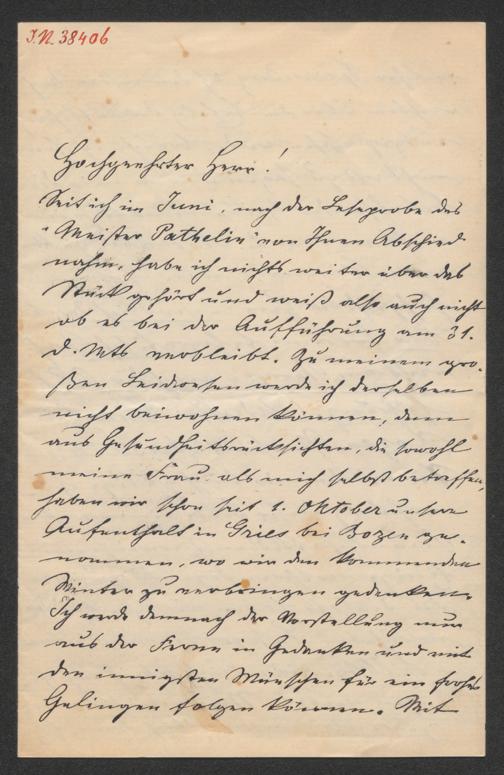 I.N. 38406
Hochgeehrter Herr!
Seit ich im Juni, nach der Leseprobe des
"Meister Pathelin" von Ihnen Abschied
nahm, habe ich nichts weiter über das
Stück gehört und weiß also auch nicht
ob es bei der Aufführung am 31.
d. Mts verbleibt. Zu meinem gro-
ßen Leidwesen werde ich derselben
nicht beiwohnen können, denn
aus Gesundheitsrücksichten, die sowohl
meine Frau als mich selbst betreffen,
haben wir schon seit 1. Oktober unsern
Aufenthalt in Gries bei Bozen ge-
nommen, wo wir den kommenden
Winter zu verbringen gedenken.
Ich werde demnach der Vorstellung nur
aus der Ferne in Gedanken und mit
den innigsten Wünschen für ein frohes
Gelingen folgen können. Mit